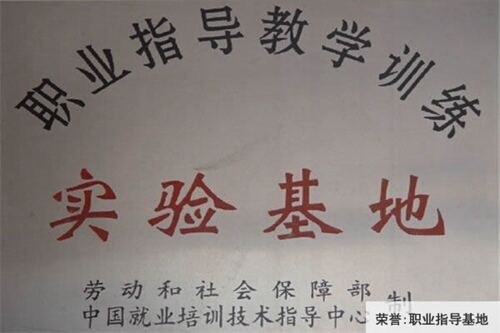 职业指导教学训练
实验基地
劳动和社会保障部
中国就业培训技术指导中心
制
荣誉:职业指导基地